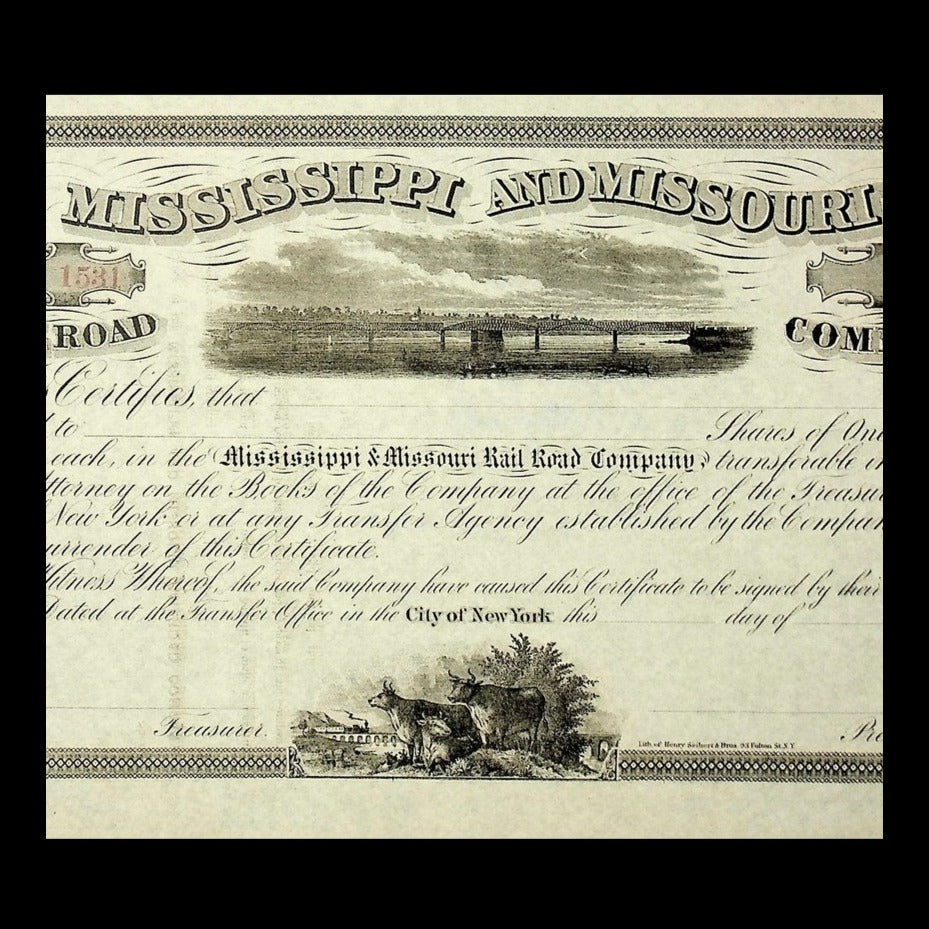 MISSISSIPPI AND MISSOURI
1531
ROAD COM
Certifies, that
to Shares of One
each, in the Mississippi & Missouri Rail Road Company, transferable in
ttorney on the Books of the Company at the office of the Treasur
New York or at any Transfer Agency established by the Compan
urrender of this Certificate.
itness Whereof, the said Company have caused this Certificate to be signed by their
Dated at the Transfer Office in the City of New York this day of
Treasurer. Pre
Lith. of Henry Seibert & Bros. 93 Fulton St. N.Y.